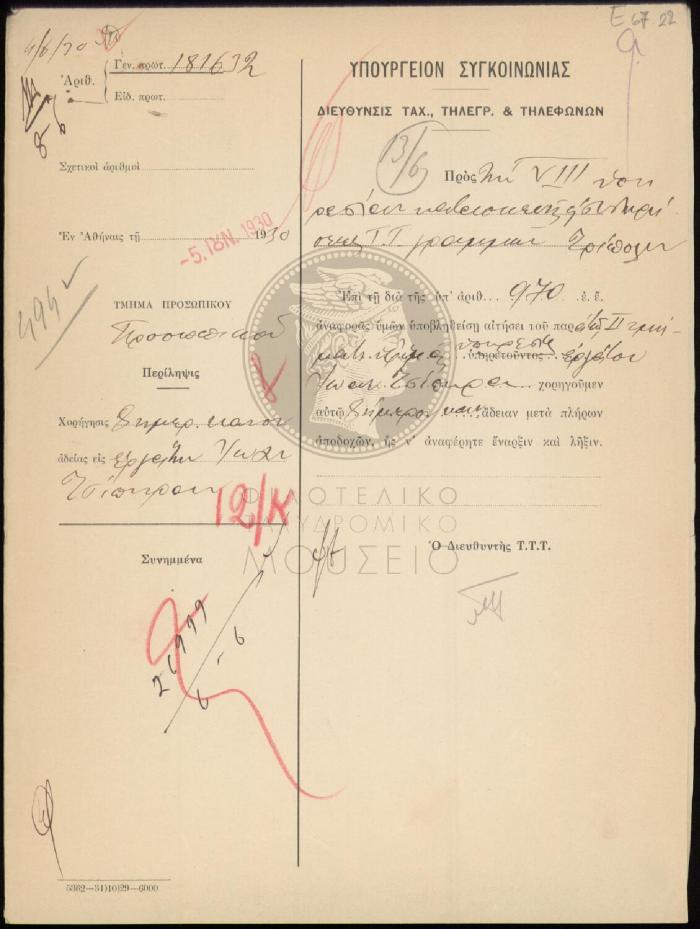 Ε 67.22
4/6/30
Ἀριθ.
Γεν. πρωτ. 181632
Εἰδ. πρωτ.
Σχετικοὶ ἀριθμοὶ
Ἐν Ἀθήναις τῇ 1930
-5. ΙΟΥΝ. 1930
494
ΤΜΗΜΑ ΠΡΟΣΩΠΙΚΟΥ
Προσωπικοῦ
Περίληψις
Χορήγησις
ἀδείας εἰς ἐργάτην Ἰωάν.
Τσίπηραν
12/Κ
Συνημμένα
26999
6-6
5362—31)10)29—6000
ΥΠΟΥΡΓΕΙΟΝ ΣΥΓΚΟΙΝΩΝΙΑΣ
ΔΙΕΥΘΥΝΣΙΣ ΤΑΧ., ΤΗΛΕΓΡ. & ΤΗΛΕΦΩΝΩΝ
13/6
Πρὸς τὴν VIII
Τ.Τ. γραμμῶν Τρίπολιν
Ἐπὶ τῇ διὰ τῆς ὑπ' ἀριθ. 970 ἐ. ἔ.
ἀναφορᾶς ὑμῶν ὑποβληθείσῃ αἰτήσει τοῦ παρὰ τῷ ΙΙ τμή-
ματι ὑπηρετοῦντος ἐργάτου
Ἰωάν. Τσίπηρα χορηγοῦμεν
αὐτῷ ἄδειαν μετὰ πλήρων
ἀποδοχῶν, ἧς ν' ἀναφέρητε ἔναρξιν καὶ λῆξιν.
Ὁ Διευθυντὴς Τ.Τ.Τ.
ΦΙΛΟΤΕΛΙΚΟ
ΤΑΧΥΔΡΟΜΙΚΟ
ΜΟΥΣΕΙΟ